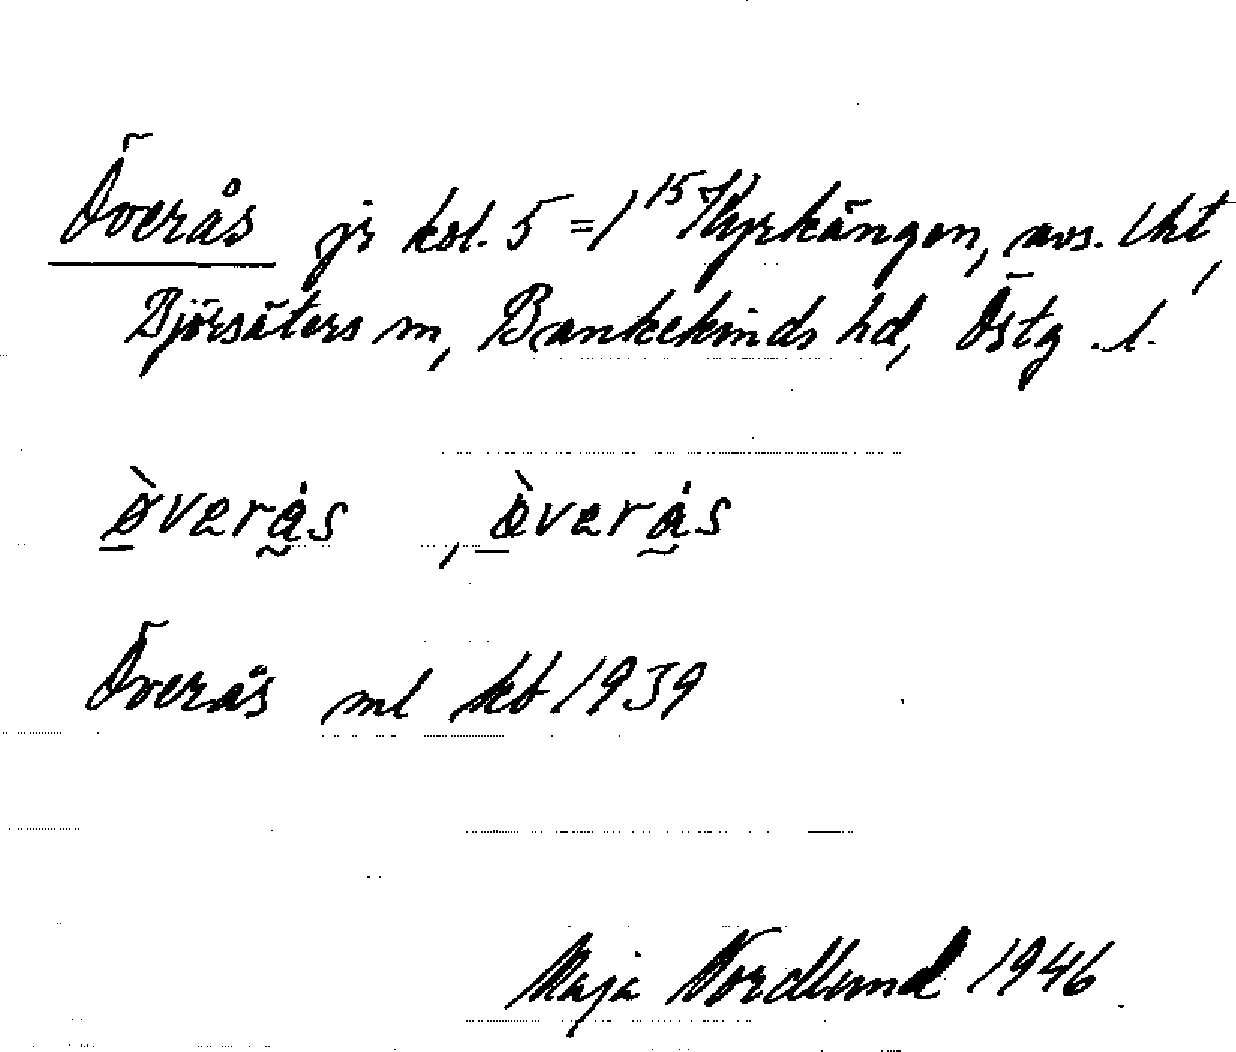 Överås jr kol. 5 = 1¹⁵ Kyrkängen, avs. lht,
Björsäters sn, Bankekinds hd, Östg. l.
ø̀verås, ö̀verås
Överås ml kb 1939
Maja Nordlund 1946